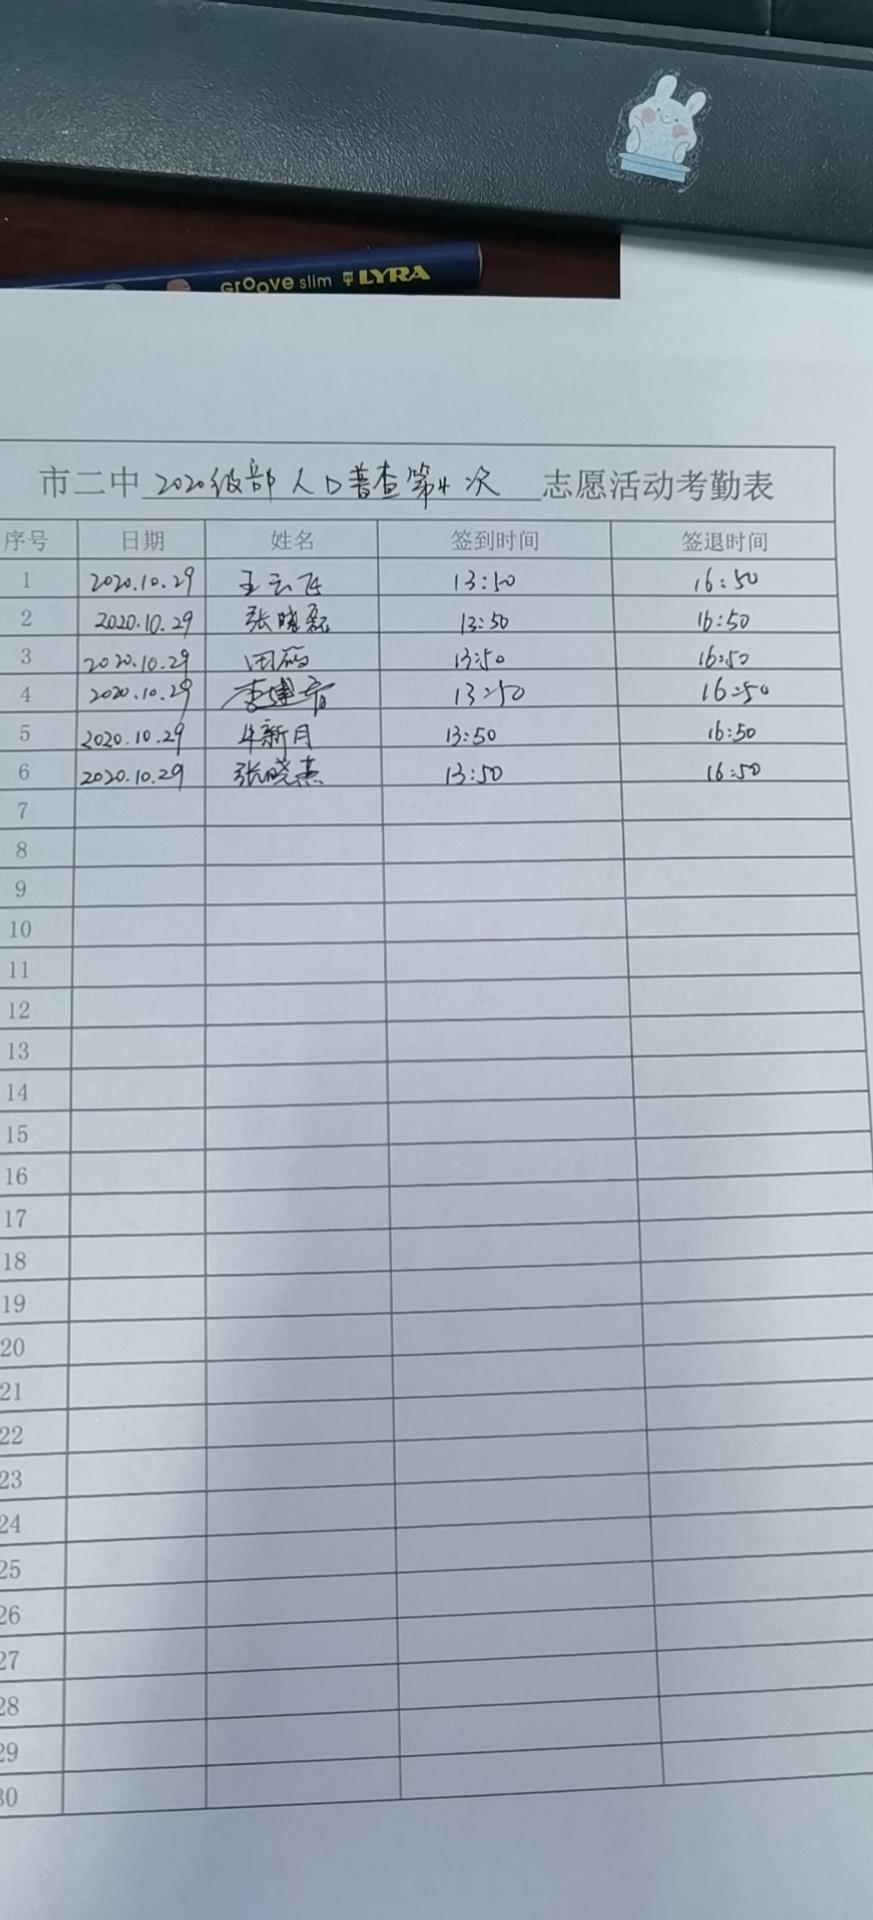 Groove slim LYRA
市二中 2020级部人口普查第4次 志愿活动考勤表
序号 日期 姓名 签到时间 签退时间
1 2020.10.29 王云飞 13:50 16:50
2 2020.10.29 张晓磊 13:50 16:50
3 2020.10.29 田 13:50 16:50
4 2020.10.29 李建 13:50 16:50
5 2020.10.29 牛新月 13:50 16:50
6 2020.10.29 张晓燕 13:50 16:50
7
8
9
10
11
12
13
14
15
16
17
18
19
20
21
22
23
24
25
26
27
28
29
30